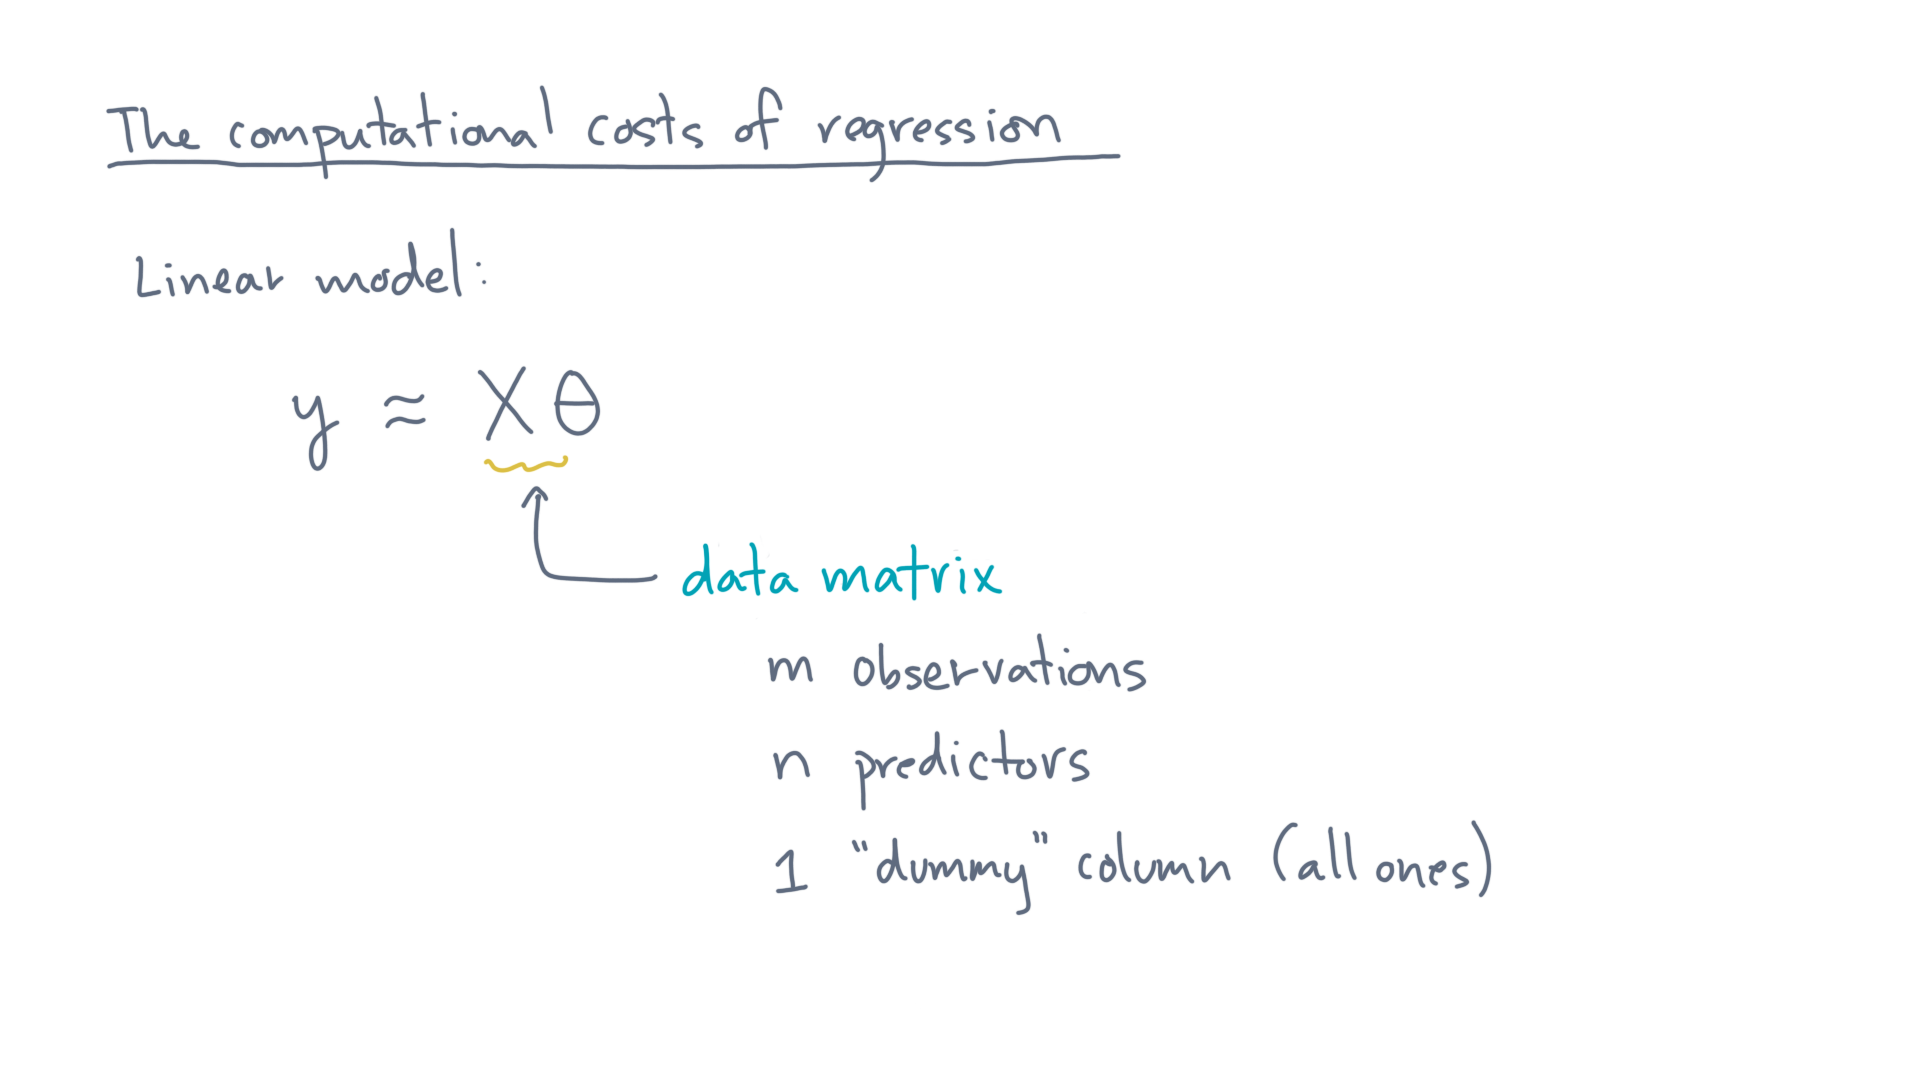 The computational costs of regression
Linear model:
y ≈ Xθ
data matrix
m observations
n predictors
1 "dummy" column (all ones)